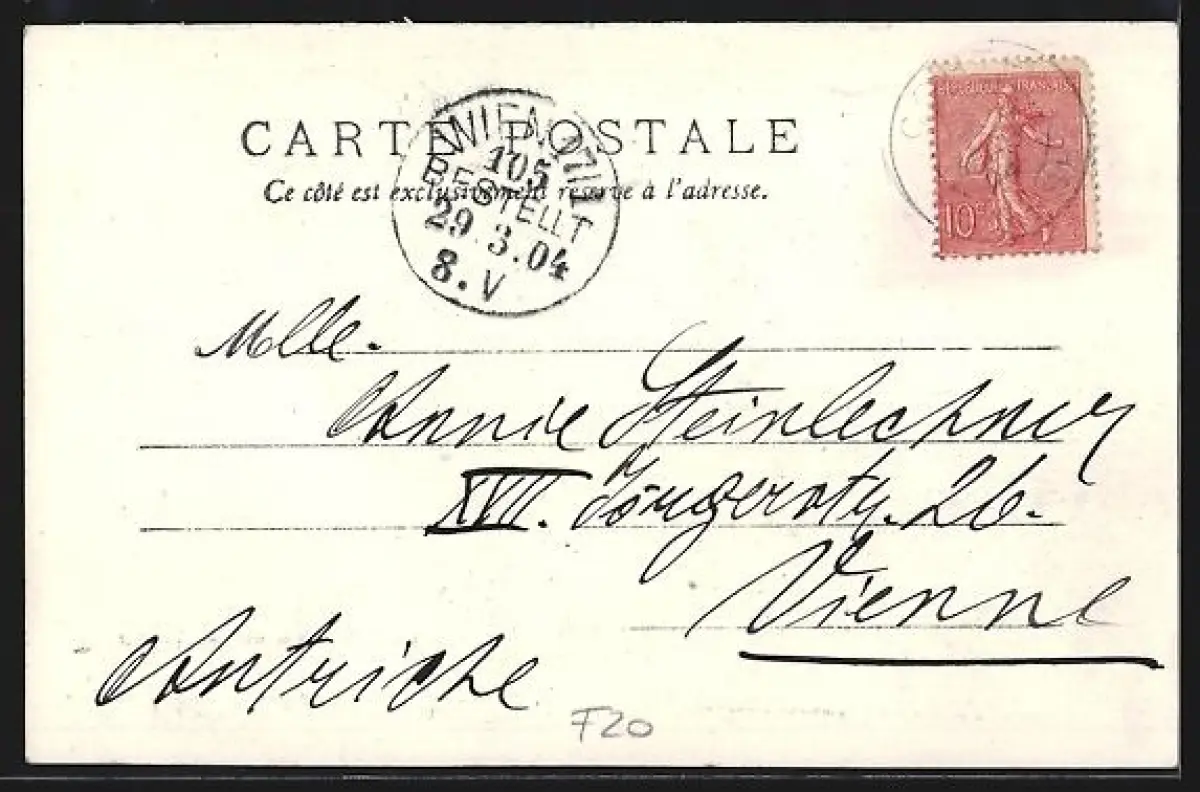 CARTE POSTALE
Ce côté est exclusivement réservé à l'adresse.
WIEN 17/1
105
BESTELLT
29.3.04
8.V
RÉPUBLIQUE FRANÇAISE
10c
Mlle.
Annie Steinlechner
XVII. Jörgerstr. 26.
Vienne
Autriche
F20